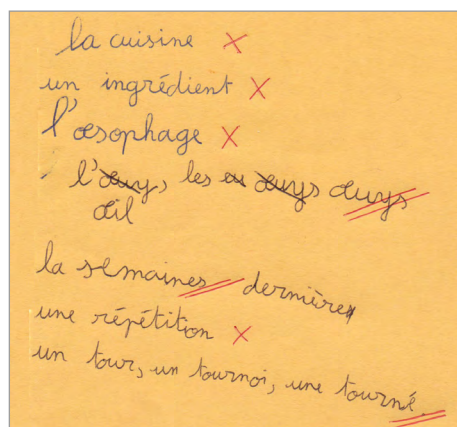 la cuisine X
un ingrédient X
l'œsophage X
l'œuys, les eu œuys œuys
œil
la semaines dernière
une répétition X
un tour, un tournoi, une tourné